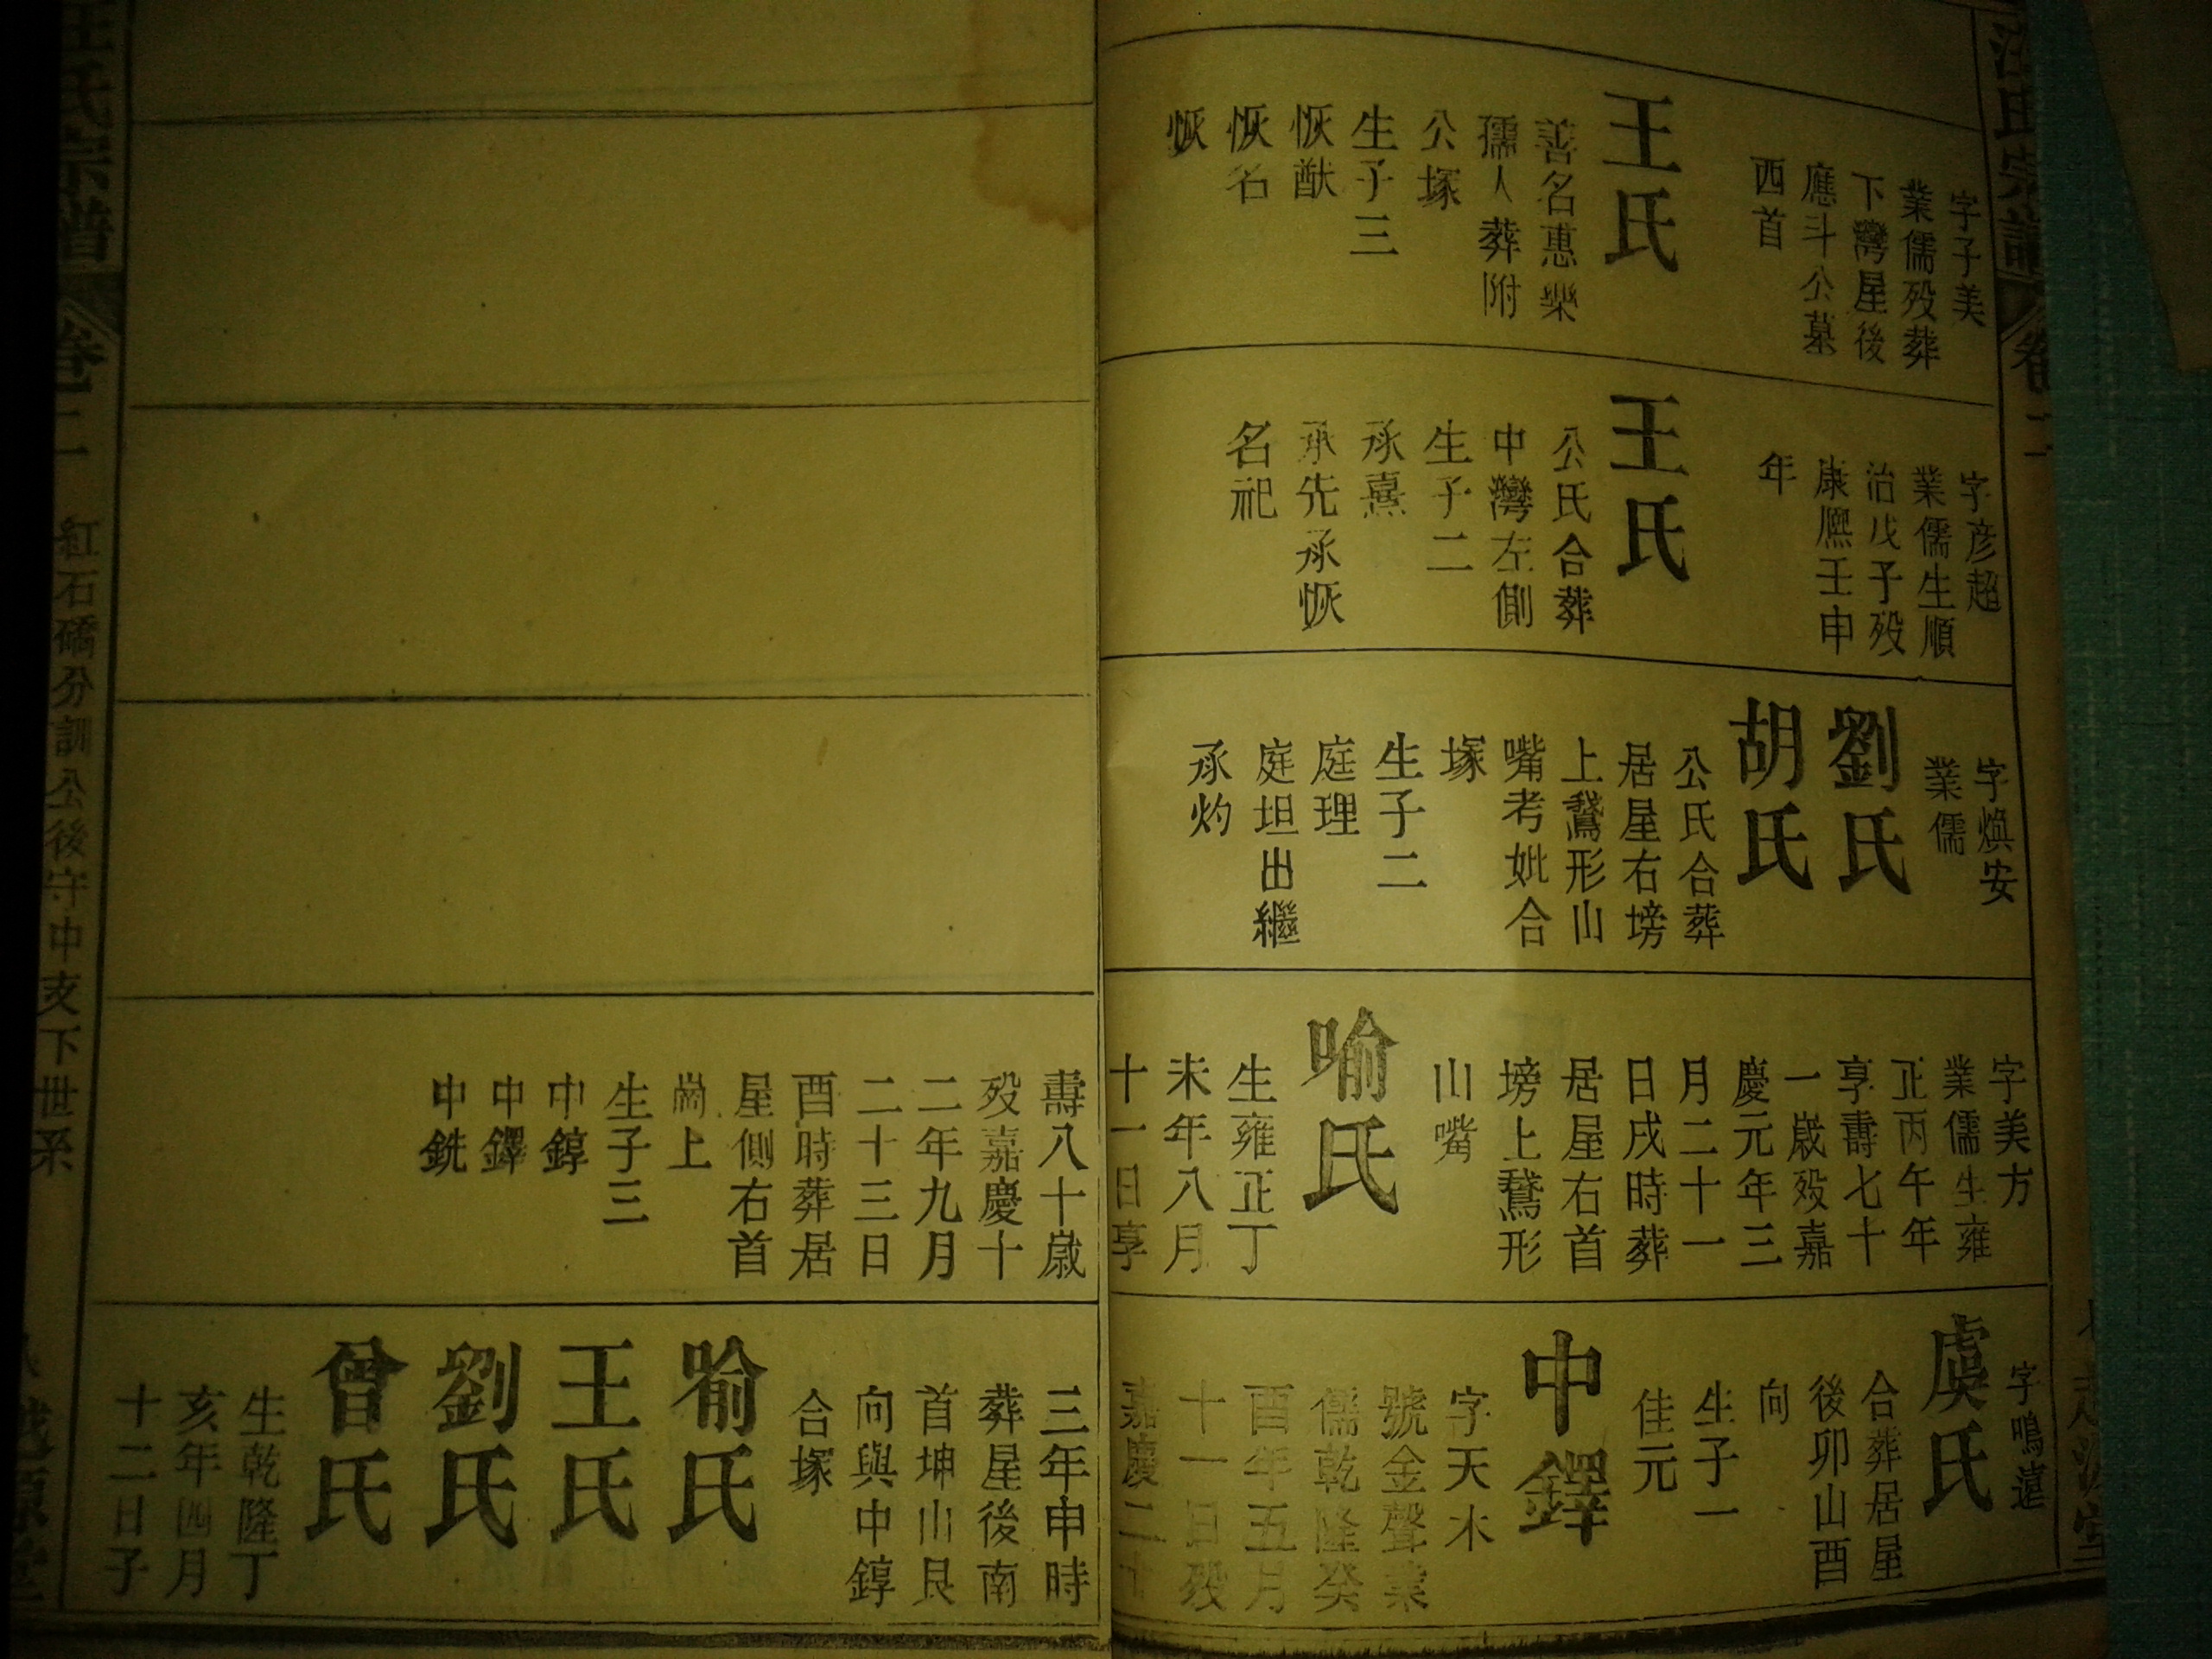 字子美
業儒殁葬
下灣屋後
應斗公墓
西首
王氏
善名惠樂
孺人葬附
公塚
生子三
恢猷
恢名
恢
字彦超
業儒生順
治戊子殁
康熈壬申
年
王氏
公氏合葬
中灣左側
生子二
承熹
承先承恢
名祀
字煥安
業儒
劉氏
胡氏
公氏合葬
居屋右塝
上鵞形山
嘴考妣合
塚
生子二
庭理
庭坦出繼
承灼
字美方
業儒生雍
正丙午年
享壽七十
一歲殁嘉
慶元年三
月二十一
日戌時葬
居屋右首
塝上鵞形
山嘴
喻氏
生雍正丁
未年八月
十一日享
字鳴遠
虞氏
合葬居屋
後卯山酉
向
生子一
佳元
中鐸
字天木
號金聲業
儒乾隆癸
酉年五月
十一日殁
嘉慶二十
壽八十歲
殁嘉慶十
二年九月
二十三日
酉時葬居
屋側右首
崗上
生子三
中錞
中鐸
中銑
三年申時
葬屋後南
首坤山艮
向與中錞
合塚
喻氏
王氏
劉氏
曾氏
生乾隆丁
亥年四月
十二日子
汪氏宗譜
卷二
紅石礄分訓公後守中支下世系